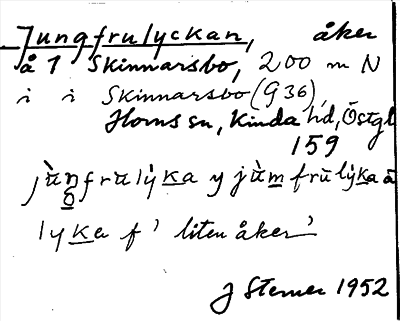 Jungfrulyckan, åker
å 1 Skinnarsbo, 200 m N
i i Skinnarsbo (G 36),
Horns sn, Kinda hd, Östgl
159
jùn̥frulẏka y jùmfrūlẏka å
lyka f' liten åker'
J Sterner 1952